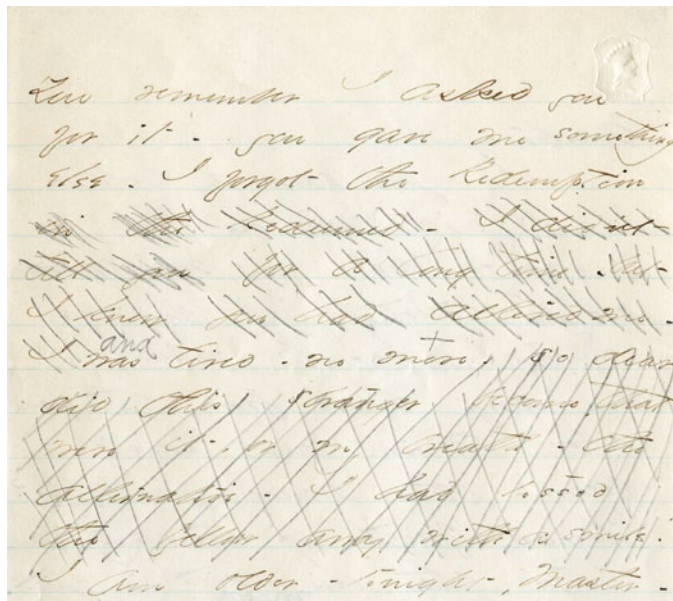 You remember I asked you
for it - you gave me something
else. I forgot the Redemption
in the Redeemed - I did n't
tell you for a long time - but
I knew you had altered me -
I and was tired - no more + so dear
did this stranger become, that
were it, or my breath - the
alternative - I had tossed
the fellow away with a smile.
I am older - tonight, Master -